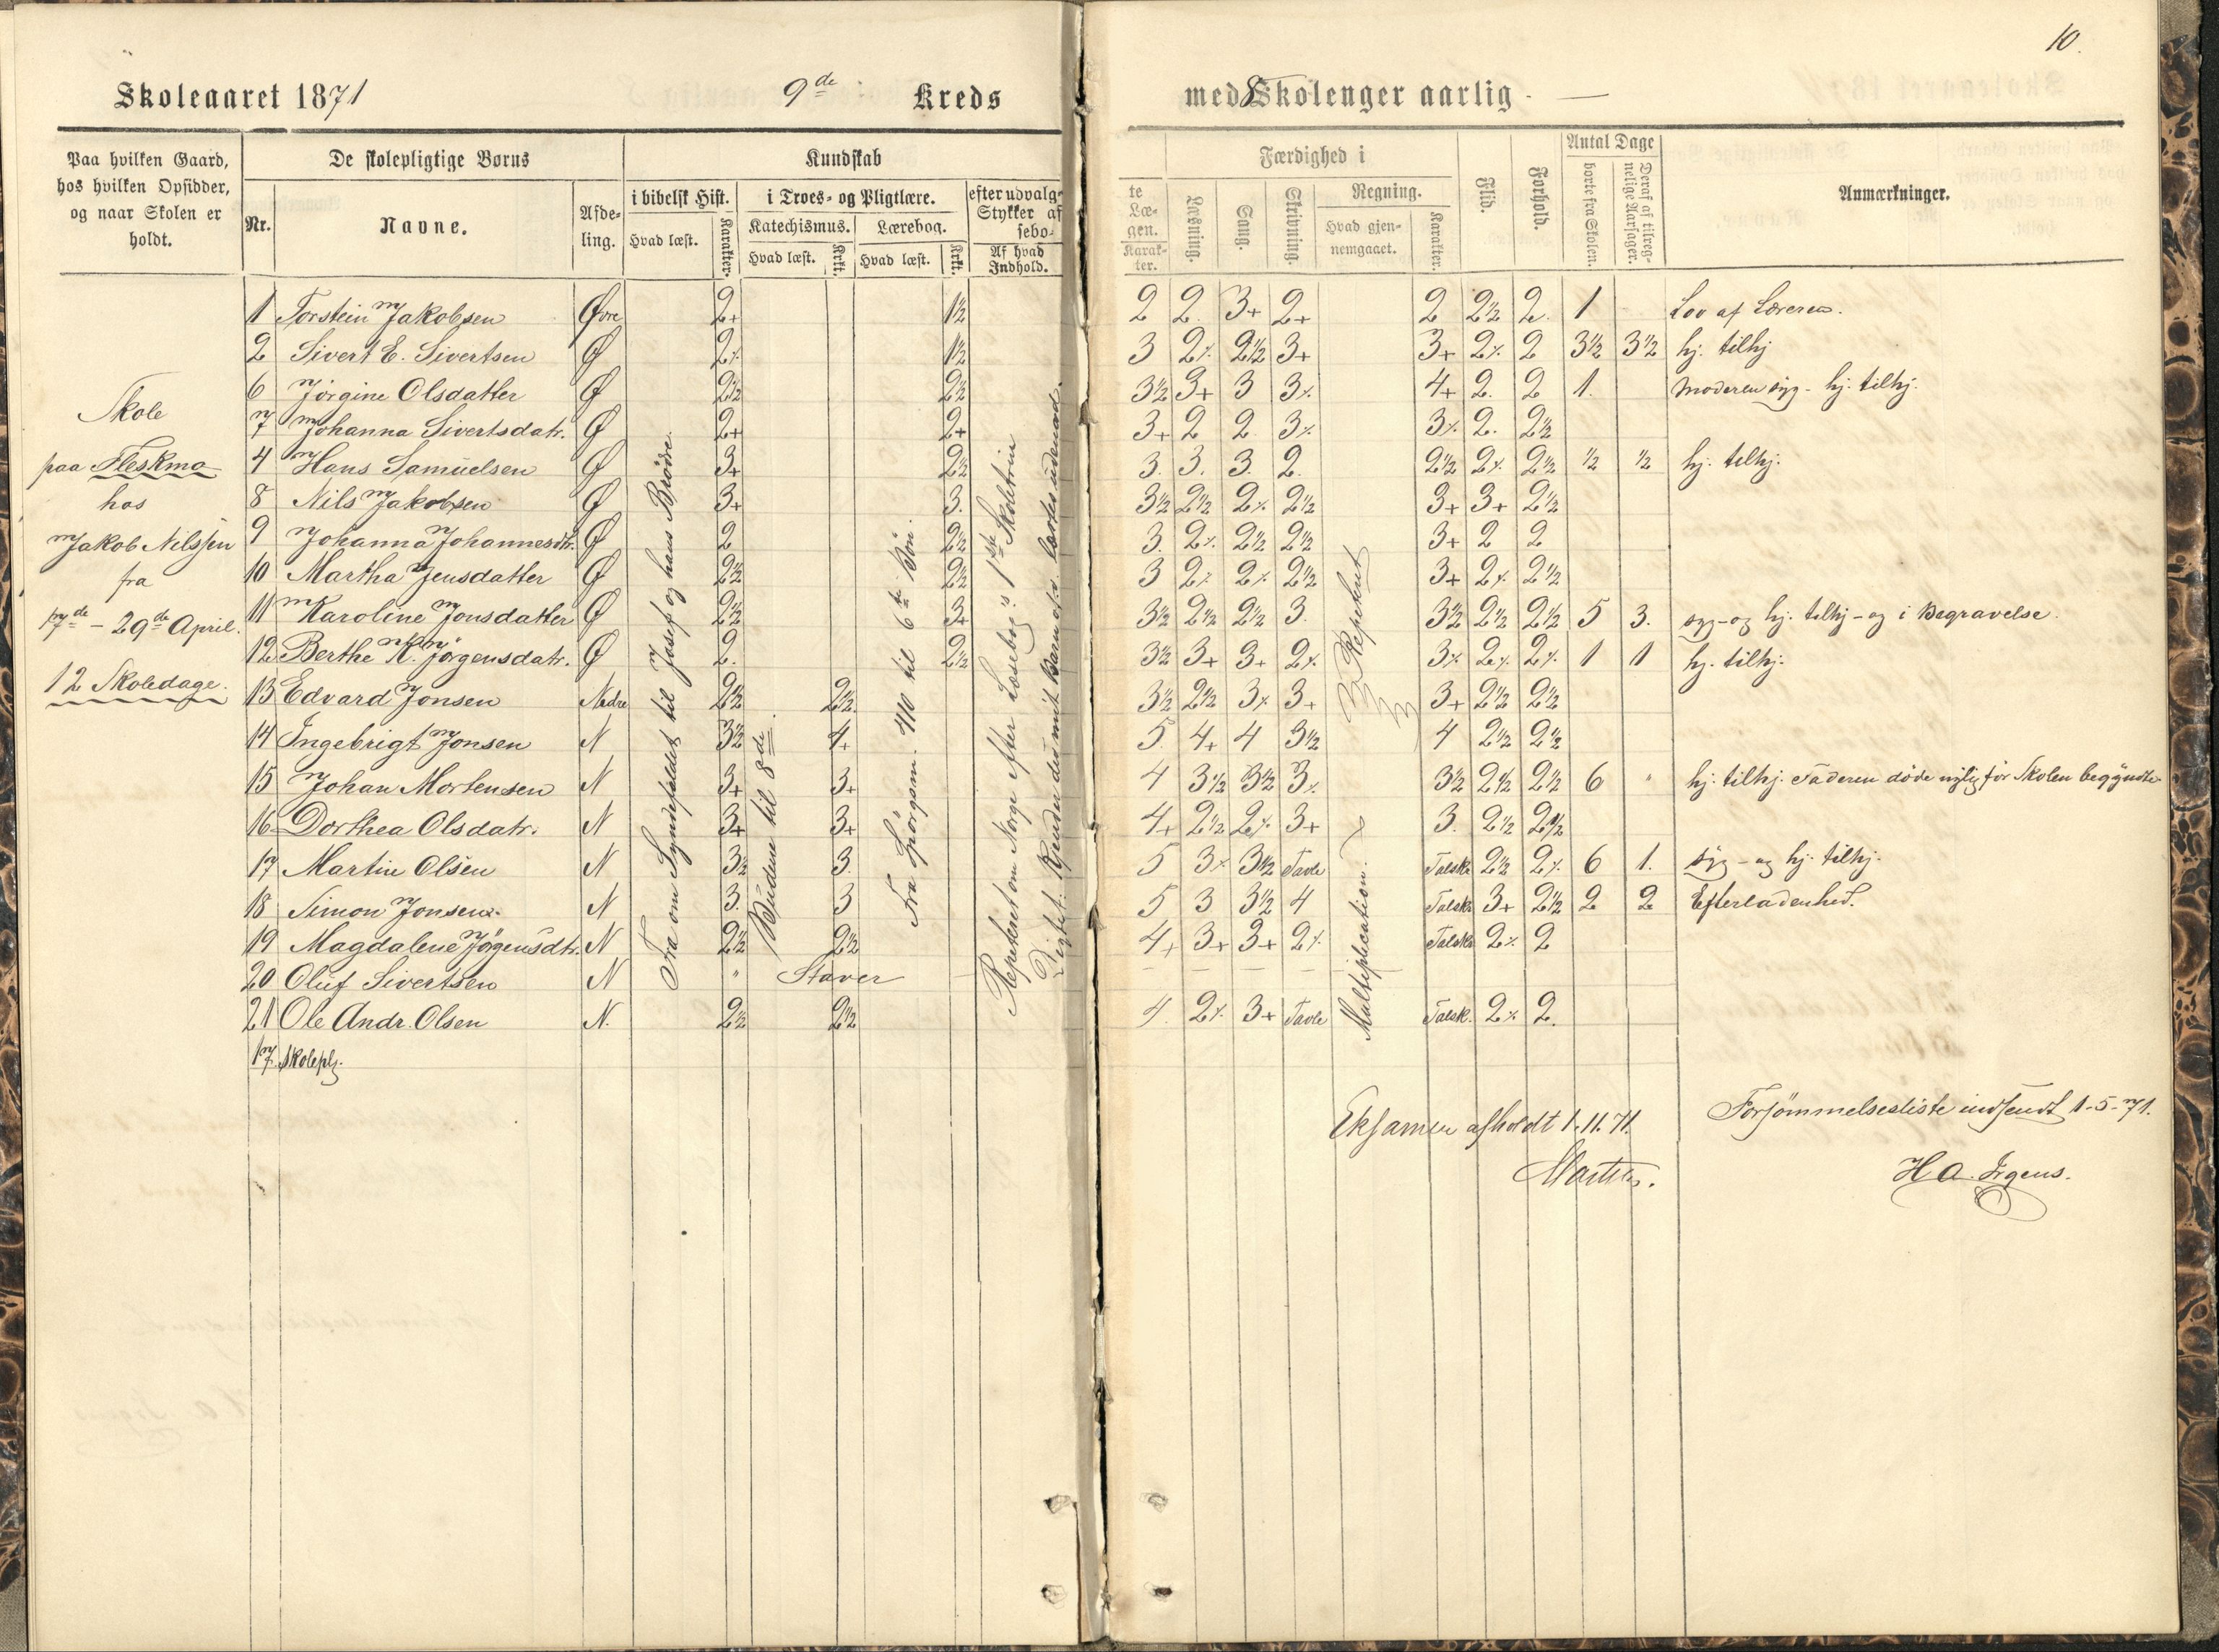 10.
Skoleaaret 1871 9de Kreds med 8 Skolenger aarlig
Paa hvilken Gaard, hos hvilken Opsidder, og naar Skolen er holdt.
De skolepligtige Børns
Nr. Navne. Afdeling.
Kundskab
i bibelsk Hist. Hvad læst. Karakter.
i Troes- og Pligtlære.
Katechismus. Hvad læst. Krkt.
Lærebog. Hvad læst. Krkt.
efter udvalgte Stykker af Læsebogen. Af hvad Indhold. Karakter.
Færdighed i
Læsning. Sang. Skrivning.
Regning. Hvad gjennemgaaet. Karakter.
Flid. Forhold.
Antal Dage
borte fra Skolen. Deraf af tilregnelige Aarsager.
Anmærkninger.
Skole
paa Fleskmo
hos
Jakob Nilssen
fra
7de - 29de April.
12 Skoledage.
1 Torstein Jakobsen Øvre 2+ 1½ 2 2. 3+ 2+ 2 2½ 2. 1 Lov af Læreren.
2 Sivert E. Sivertsen Ø 2⁒ 1½ 3 2⁒ 2½ 3+ 3+ 2⁒ 2 3½ 3½ hj. tilhj
6 Jörgine Olsdatter Ø 2½ 2½ 3½ 3+ 3 3⁒ 4+ 2. 2 1. Moderen syg - hj. tilhj.
7 Johanna Sivertsdatr. Ø 2+ 2+ 3+ 2 2 3⁒ 3⁒ 2. 2½
4 Hans Samuelsen Ø 3+ 2½ 3. 3. 3. 2. 2½ 2⁒ 2½ ½ ½ hj. tilhj.
8 Nils Jakobsen Ø 3+ 3. 3½ 2½ 2⁒ 2½ 3+ 3+ 2½
9 Johanna Johannesdtr. Ø 2 2½ 3. 2⁒ 2½ 2½ 3+ 2 2
10 Martha Jensdatter Ø 2½ 2½ 3 2⁒ 2⁒ 2½ 3+ 2⁒ 2½
11 Karoline Jonsdatter Ø 2½ 3+ 3½ 2½ 2½ 3. 3½ 2½ 2½ 5 3. syg - og hj. tilhj - og i Begravelse.
12 Berthe K. Jörgensdatr. Ø 2. 2½ 3½ 3+ 3+ 2⁒ 3⁒ 2⁒ 2⁒ 1 1 hj. tilhj.
13 Edvard Jonsen Nedre 2½ 2½ 3½ 2½ 3⁒ 3+ 3+ 2½ 2½
14 Ingebrigt Jonsen N 3½ 4+ 5. 4+ 4 3½ 4 2½ 2½
15 Johan Mortensen N 3+ 3+ 4 3½ 3½ 3⁒ 3½ 2½ 2½ 6 " hj. tilhj. Faderen døde nylig för Skolen begyndte
16 Dorthea Olsdatr. N 3+ 3+ 4+ 2½ 2⁒ 3+ 3. 2½ 2½
17 Martin Olsen N 3½ 3. 5 3⁒ 3½ Tavle Talsk. 2½ 2⁒ 6 1. syg - og hj. tilhj.
18 Simon Jonsen N 3. 3 5 3 3½ 4 Talsk. 3+ 2½ 2 2 Efterladenhed.
19 Magdalene Jörgensdtr. N 2½ 2½ 4+ 3+ 3+ 2⁒ Talsk. 2⁒ 2
20 Oluf Sivertsen N " Staver
21 Ole Andr. Olsen N. 2½ 2½ 4. 2⁒ 3+ Tavle Talsk. 2⁒ 2.
17 Skolepl.
Fra om Syndefaldet til Josef og hans Brödre.
Budene til 8de.
Fra Spörgsm. 410 til 6te Bön.
Repeteret om Norge efter Læsebog's 1ste Skoletrin
Digtet: Kjender du mit Barn o.s.v. Lærtes udenad.
Multiplication.
Repeteret
Eksamen afholdt 1.11.71.
Forsömmelsesliste indsendt 1-5-71.
H. A. Irgens.